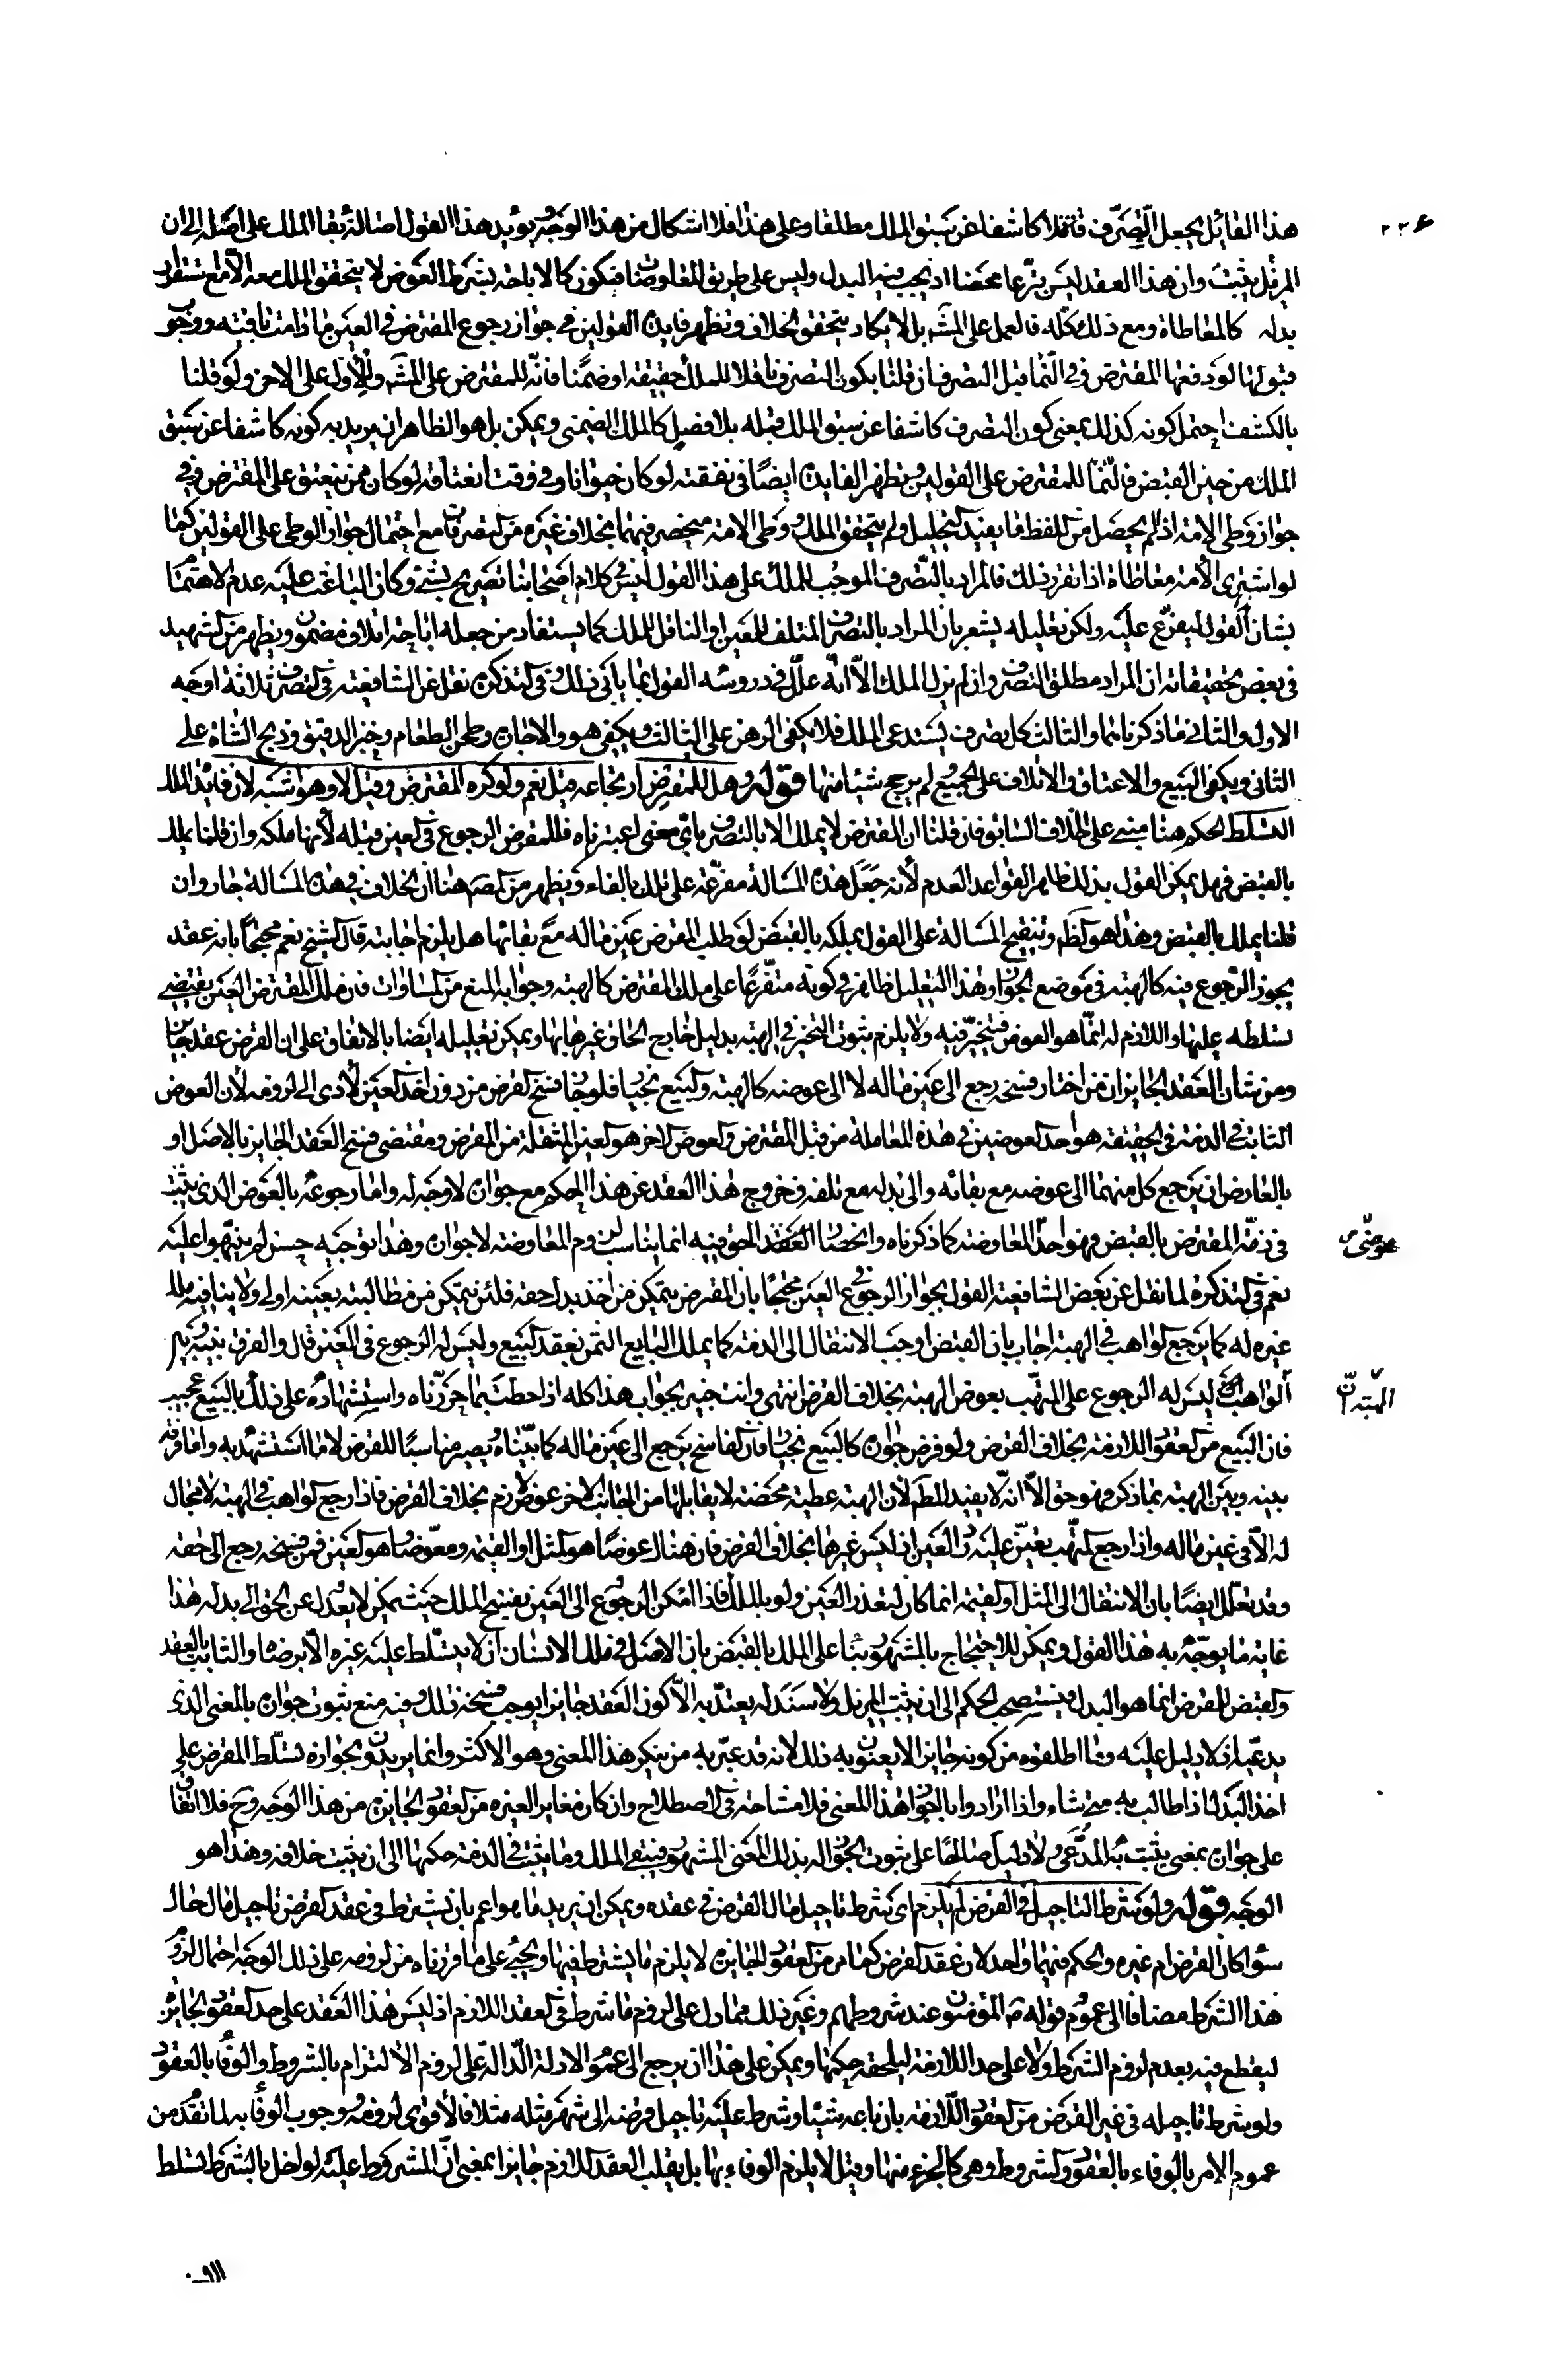 ٢٢٤
هذا القائل يجعل التصرف ناقلا كاشفا عن سبق الملك مطلقا وعلى هذا فلا اشكال من هذا الوجه ويؤيد هذا القول اصالة بقاء الملك على اصله الى ان
المزيل يثبت وان هذا العقد ليس تبرعا محضا اذ يجب فيه البدل وليس على طريق المعاوضات فيكون كالاباحة بشرط العوض لا يتحقق الملك معه الا مع استقرار
بدله كالمعاطاة ومع ذلك كله فالعمل على المشه بل لا يكاد يتحقق الخلاف وتظهر فايدة القولين في جواز رجوع المقرض في العين ما دامت باقية ووجوب
قبولها لو دفعها المقترض وفي النماء قبل التصرف ان قلنا بكون التصرف ناقلا للملك حقيقة او ضمنا فانه للمقترض على المشه وللاول على الاخر ولو قلنا
بالكشف احتمل كونه كذلك بمعنى كون التصرف كاشفا عن سبق الملك قبله بلا فصل كالملك الضمني ويمكن بل هو الظاهر ان يريد به كونه كاشفا عن سبق
الملك من حين القبض فالنماء للمقترض على القولين وتظهر الفايدة ايضا في نفقته لو كان حيوانا وفي وقت انعتاقه لو كان ممن ينعتق على المقترض وفي
جواز وطى الامة اذ لم يحصل من اللفظ ما يفيد التحليل ولم يتحقق الملك ووطى الامة منحصر فيهما بخلاف غيره من التصرفات مع احتمال جواز الوطى على القولين كما
لو اشترى الامة معاطاة اذا تقرر ذلك فالمراد بالتصرف الموجب للملك على هذا القول ليس في كلام اصحابنا تصريح بشئ وكان الباعث عليه عدم الاهتمام
بشان القول ليفرع عليه ولكن تعليله يشعر بان المراد بالتصرف المتلف للعين او الناقل للملك كما يستفاد من جعله اباحة اتلاف مضمون ويظهر من الشهيد
في بعض تحقيقاته ان المراد مطلق التصرف وان لم يزل الملك الا انه علل في دروسه القول بما يابى ذلك وفي التذكرة نقل عن الشافعية في التصرف ثلاثة اوجه
الاول والثاني ما ذكرناهما والثالث كل تصرف يستدعى الملك فلا يكفي الرهن على الثالث ويكفي هو والاجارة وطحن الطعام وخبز الدقيق وذبح الشاة على
الثاني ويكفي البيع والاعتاق والاتلاف على الجميع ولم يرجح شيئا منها قوله وهل للمقرض ارتجاعه قيل نعم ولو كره المقترض وقيل لا وهو اشبه لان فايدة الملك
التسلط الحكم هنا مبني على الخلاف السابق فان قلنا ان المقترض لا يملك الا بالتصرف باي معنى اعتبرناه فللمقرض الرجوع في العين قبله لانها ملكه وان قلنا يملك
بالقبض فهل يمكن القول بذلك ظاهر القواعد العدم لانه جعل هذه المسالة مفرعة على تلك بالفاء ويظهر من المص هنا ان الخلاف في هذه المسالة جار وان
قلنا يملك بالقبض وهذا هو الظ وتنقيح المسالة على القول بملكه بالقبض لو طلب المقرض عين ماله مع بقائها هل يلزم اجابته قال الشيخ نعم محتجا بانه عقد
يجوز الرجوع فيه كالهبة في موضع الجواز وهذا التعليل ظاهر في كونه متفرعا على ملك المقترض كالهبة وجوابه المنع من المساوات فان ملك المقترض العين يقتضي
تسلطه عليها واللازم له انما هو العوض فيتخير فيه ولا يلزم ثبوت التخير في الهبة بدليل خارج الحاق غيرها بها ويمكن تعليله ايضا بالاتفاق على ان القرض عقد جايز
ومن شان العقد الجايز ان من اختار فسخه رجع الى عين ماله لا الى عوضه كالهبة والبيع بخيار فلو جاز فسخ القرض من دون اخذ العين لادى الى لزومه لان العوض
الثابت في الذمة في الحقيقة هو احد العوضين في هذه المعاملة من قبل المقترض والعوض الاخر هو العين المنتقلة من المقرض ومقتضى فسخ العقد الجايز بالاصل او
بالعارض ان يرجع كل منهما الى عوضه مع بقائه والى بدله مع تلفه فخروج هذا العقد عن هذا الحكم مع جوازه لا وجه له واما رجوعه بالعوض الذي يثبت
في ذمة المقترض بالقبض فهو احد المعاوضة كما ذكرناه وانحصار العقد الحق فيه انما يناسب لزوم المعاوضة لا جوازه وهذا توجيه حسن لم ينبهوا عليه
عوضى ص
نعم في التذكرة لما نقل عن بعض الشافعية القول بجواز الرجوع في العين محتجا بان المقرض يتمكن من اخذ بدل حقه فلئن يتمكن من مطالبته بعينه اولى ولا ينافيه ملك
غيره له كما يرجع الواهب في الهبة اجاب بان القبض اوجب الانتقال الى الذمة كما يملك البايع الثمن بعقد البيع وليس له الرجوع في العين قال والفرق بينه وبين
الهبة ان
الواهب ليس له الرجوع على المتهب بعوض الهبة بخلاف القرض انتهى وانت خبير بجواب هذا كله اذا احطت بما حررناه واستشهاده على ذلك بالبيع عجيب
فان البيع من العقود اللازمة بخلاف القرض ولو فرض جوازه كالبيع بخيار فان الفاسخ يرجع الى عين ماله كما بيناه ويصير مناسبا للقرض لا ما استشهد به واما فرقه
بينه وبين الهبة بما ذكر فهو حق الا انه لا يفيد المطلم لان الهبة عطية محضة لا يقابلها من الجانب الاخر عوض لازم بخلاف القرض فاذا رجع الواهب في الهبة لا مجال
له الا في عين ماله واذا رجع المتهب تعين عليه رد العين اذ ليس غيرها بخلاف القرض فان هناك عوضا هو المثل او القيمة ومعوضا هو العين فمن فسخه رجع الى حقه
وقد تعلل ايضا بان الانتقال الى المثل او القيمة انما كان لتعذر العين ولو بالملك فاذا امكن الرجوع الى العين بفسخ الملك حيث يمكن لا يعدل عن الحق الى بدله هذا
غاية ما يوجه به هذا القول ويمكن الاحتجاج بالمشهور بناء على الملك بالقبض بان الاصل في ملك الانسان ان لا يتسلط عليه غيره الا برضاه والثابت بالعقد
والقبض للمقرض انما هو البدل فيستصحب الحكم الى ان يثبت المزيل ولا سند له يعتد به الا كون العقد جايزا يوجب فسخه ذلك وفيه منع ثبوت جوازه بالمعنى الذي
يدعيه اذ لا دليل عليه وما اطلقوه من كونه جايزا لا يعنون به ذلك لانه قد عبر به من ينكر هذا المعنى وهو الاكثر وانما يريدون بجوازه تسلط المقرض على
اخذ البدل اذا طالب به متى شاء واذا ارادوا بالجواز هذا المعنى فلا مشاحة في الاصطلاح وان كان مغايرا لغيره من العقود الجايزة من هذا الوجه وح فلا اتفاق
على جوازه بمعنى يثبت به المدعى ولا دليل صالحا على ثبوت الجواز له بذلك المعنى المشهور فيبقى الملك وما يثبت في الذمة حكمهما الى ان يثبت خلافه وهذا هو
الوجه قوله ولو شرط التاجيل في القرض لم يلزم اى شرط تاجيل مال القرض في عقده ويمكن ان يريد ما هو اعم بان يشترط في عقد القرض تاجيل مال حال
سواء كان القرض ام غيره والحكم فيهما واحد لان عقد القرض كما مر من العقود الجايزة لا يلزم ما يشترط فيها ويجئ على ما قررناه من لزومه على ذلك الوجه احتمال لزوم
هذا الشرط مضافا الى عموم قوله ص المؤمنون عند شروطهم وغير ذلك مما دل على لزوم ما شرط في العقد اللازم اذ ليس هذا العقد على حد العقود الجايزة
ليقطع فيه بعدم لزوم الشرط ولا على حد اللازمة ليلحقه حكمها ويمكن على هذا ان يرجع الى عموم الادلة الدالة على لزوم الالتزام بالشروط والوفاء بالعقود
ولو شرط تاجيله في غير القرض من العقود اللازمة بان باعه شيئا وشرط عليه تاجيل قرضه الى شهر قبله مثلا فالاقوى لزومه ووجوب الوفاء به لما تقدم من
عموم الامر بالوفاء بالعقود والشروط وهي كالجزء منها وقيل لا يلزم الوفاء بها بل يقلب العقد اللازم جايزا بمعنى ان المشروط عليه لو اخل بالشرط تسلط